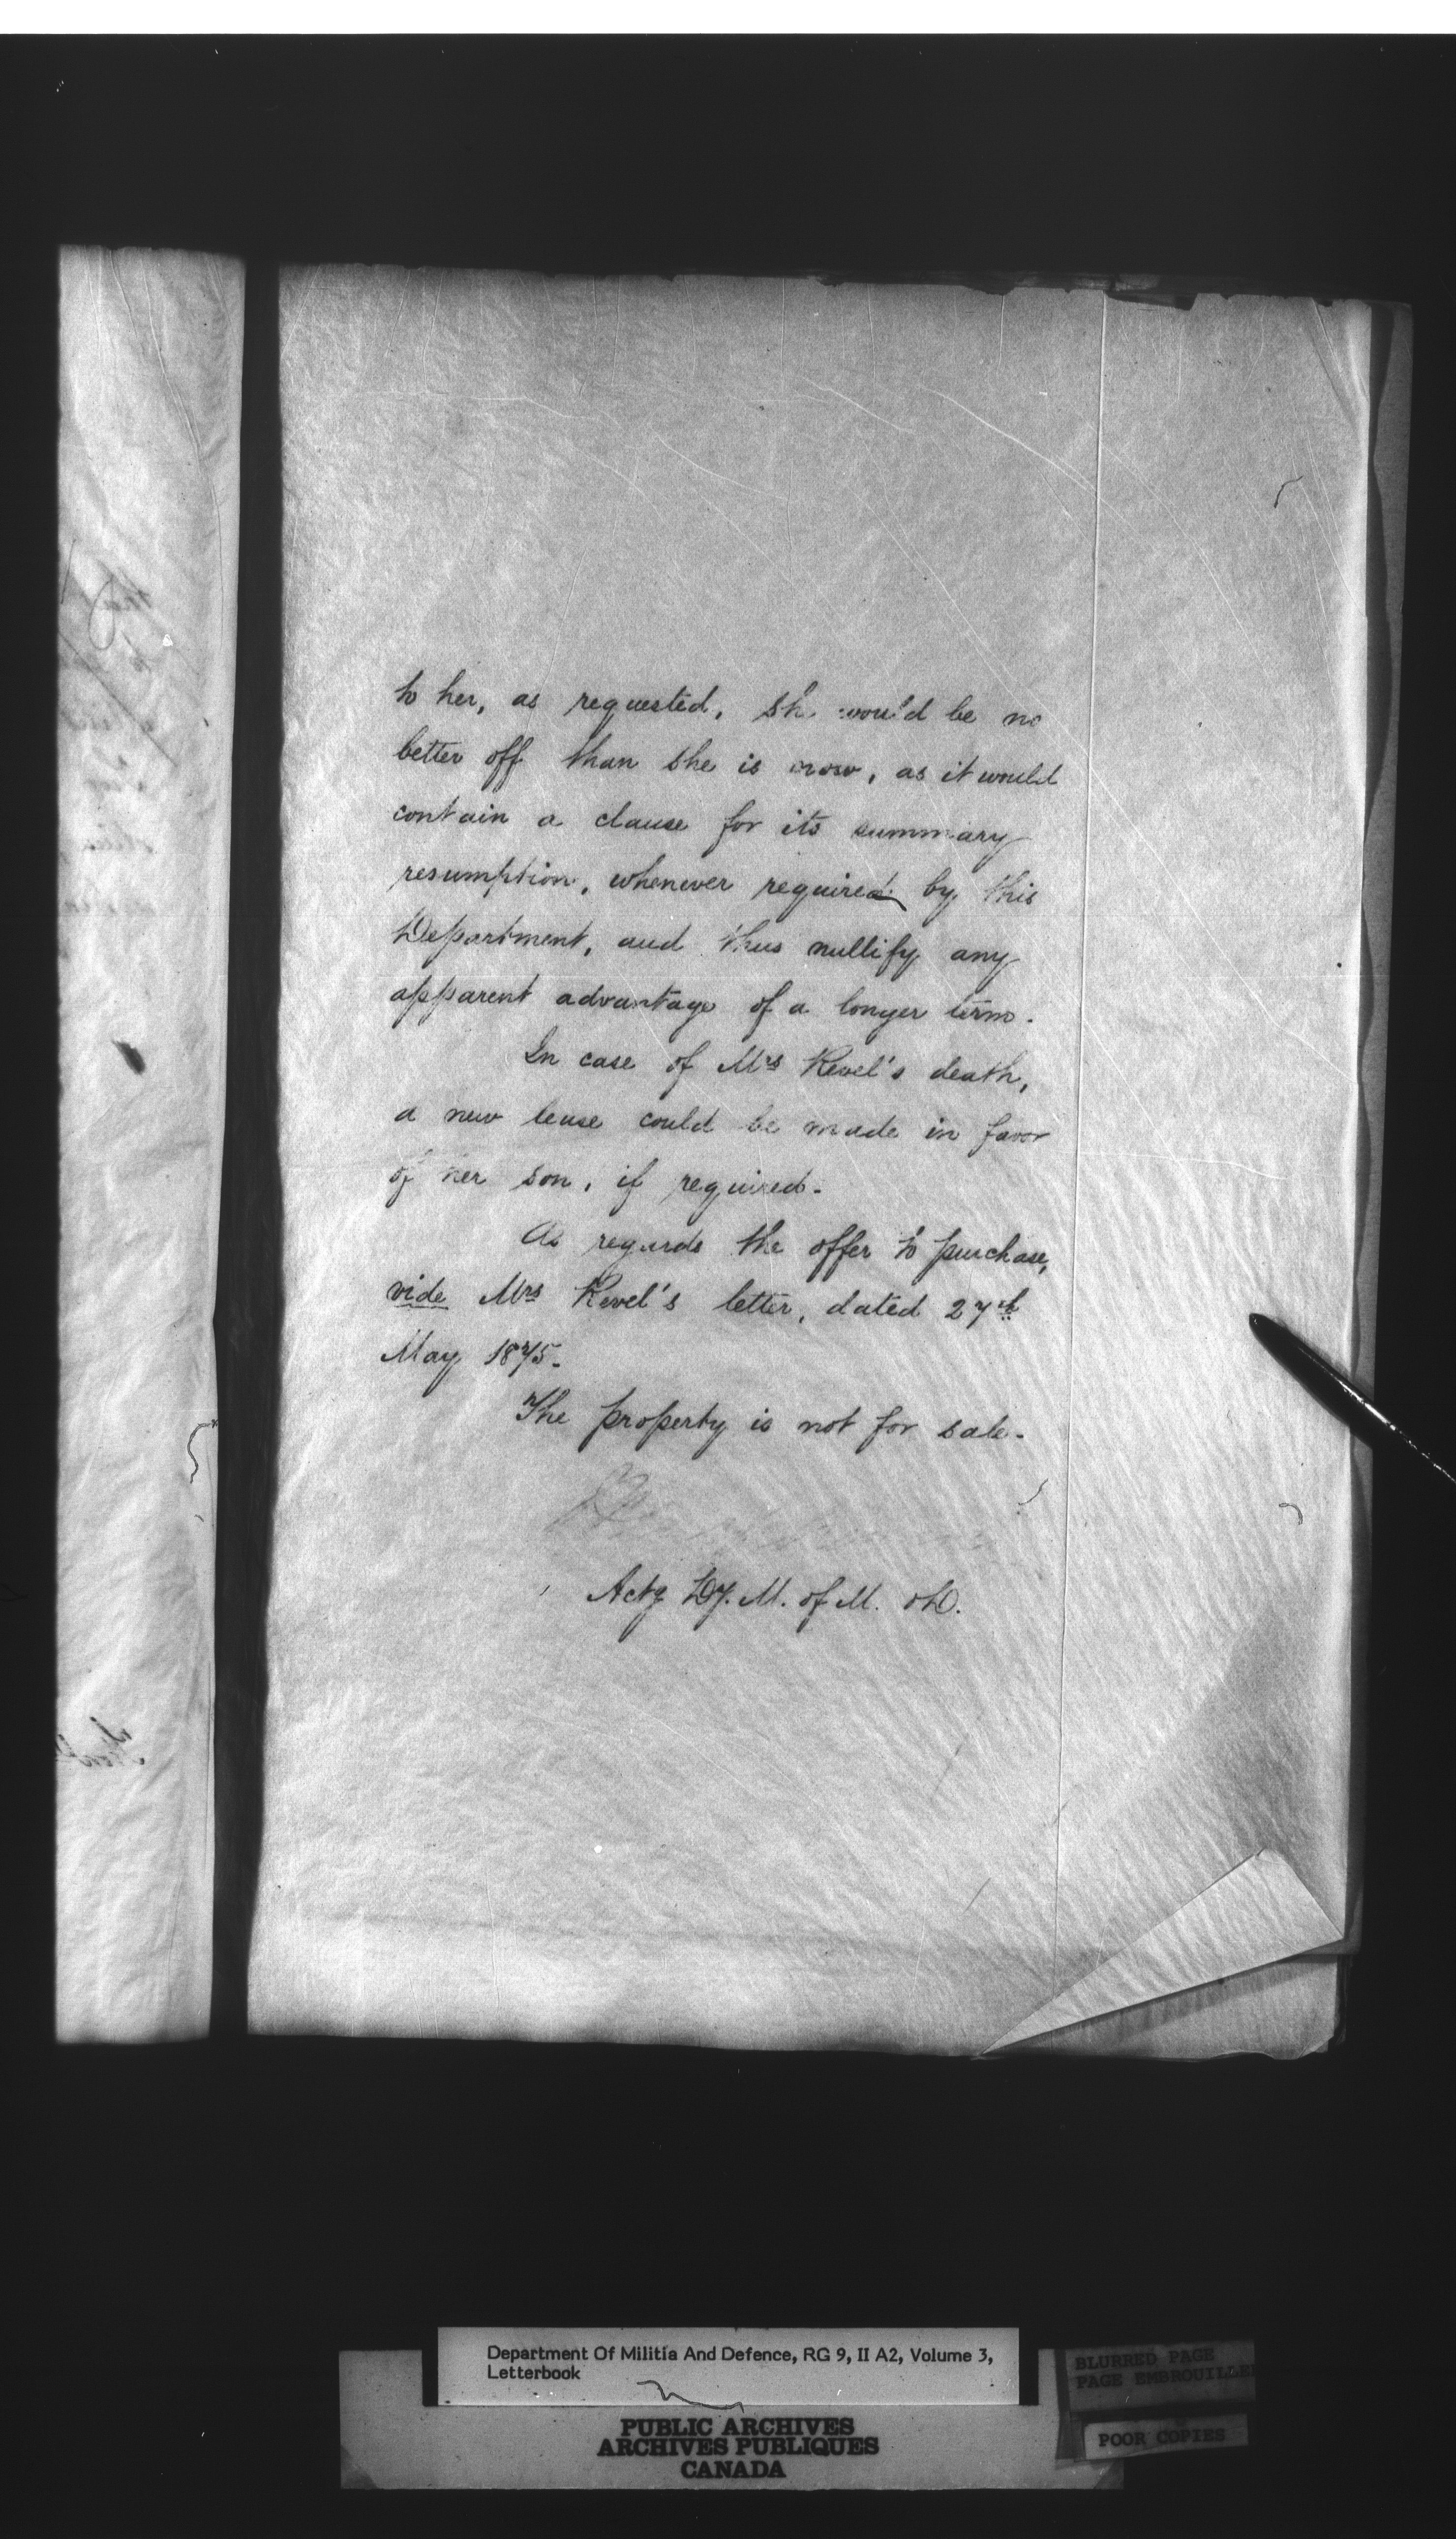 to her, as requested, she would be no
better off than she is now, as it would
contain a clause for its summary
resumption, whenever required by this
Department, and thus nullify any
apparent advantage of a longer term.
In case of Mrs Revel's death,
a new lease could be made in favor
of her son, if required.
As regards the offer to purchase,
vide Mrs Revel's letter, dated 27th
May 1875.
The property is not for sale.
Actg Dy. M. of M. & D.
Department Of Militia And Defence, RG 9, II A2, Volume 3,
Letterbook
PUBLIC ARCHIVES
ARCHIVES PUBLIQUES
CANADA
BLURRED PAGE
PAGE EMBROUILLEE
POOR COPIES